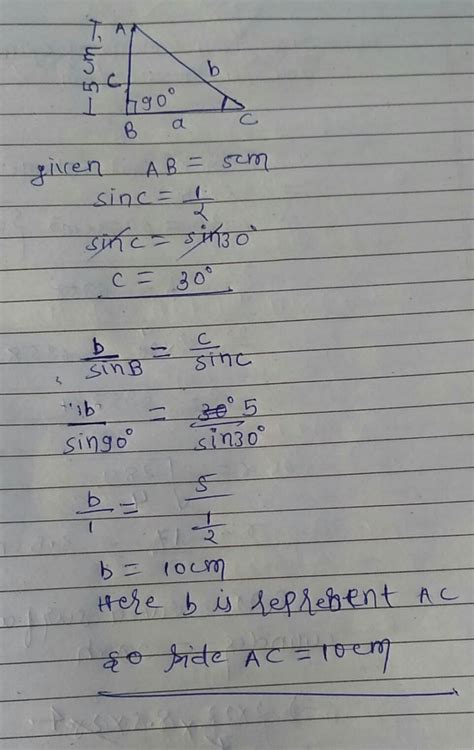 A
5cm
C
b
90°
B
a
C
given AB = 5cm
sinc = 1/2
sinc = sin30°
c = 30°
b/sinB = c/sinC
b/sin90° = 30° 5/sin30°
b/1 = 5/(1/2)
b = 10cm
Here b is reprebent AC
so side AC = 10cm